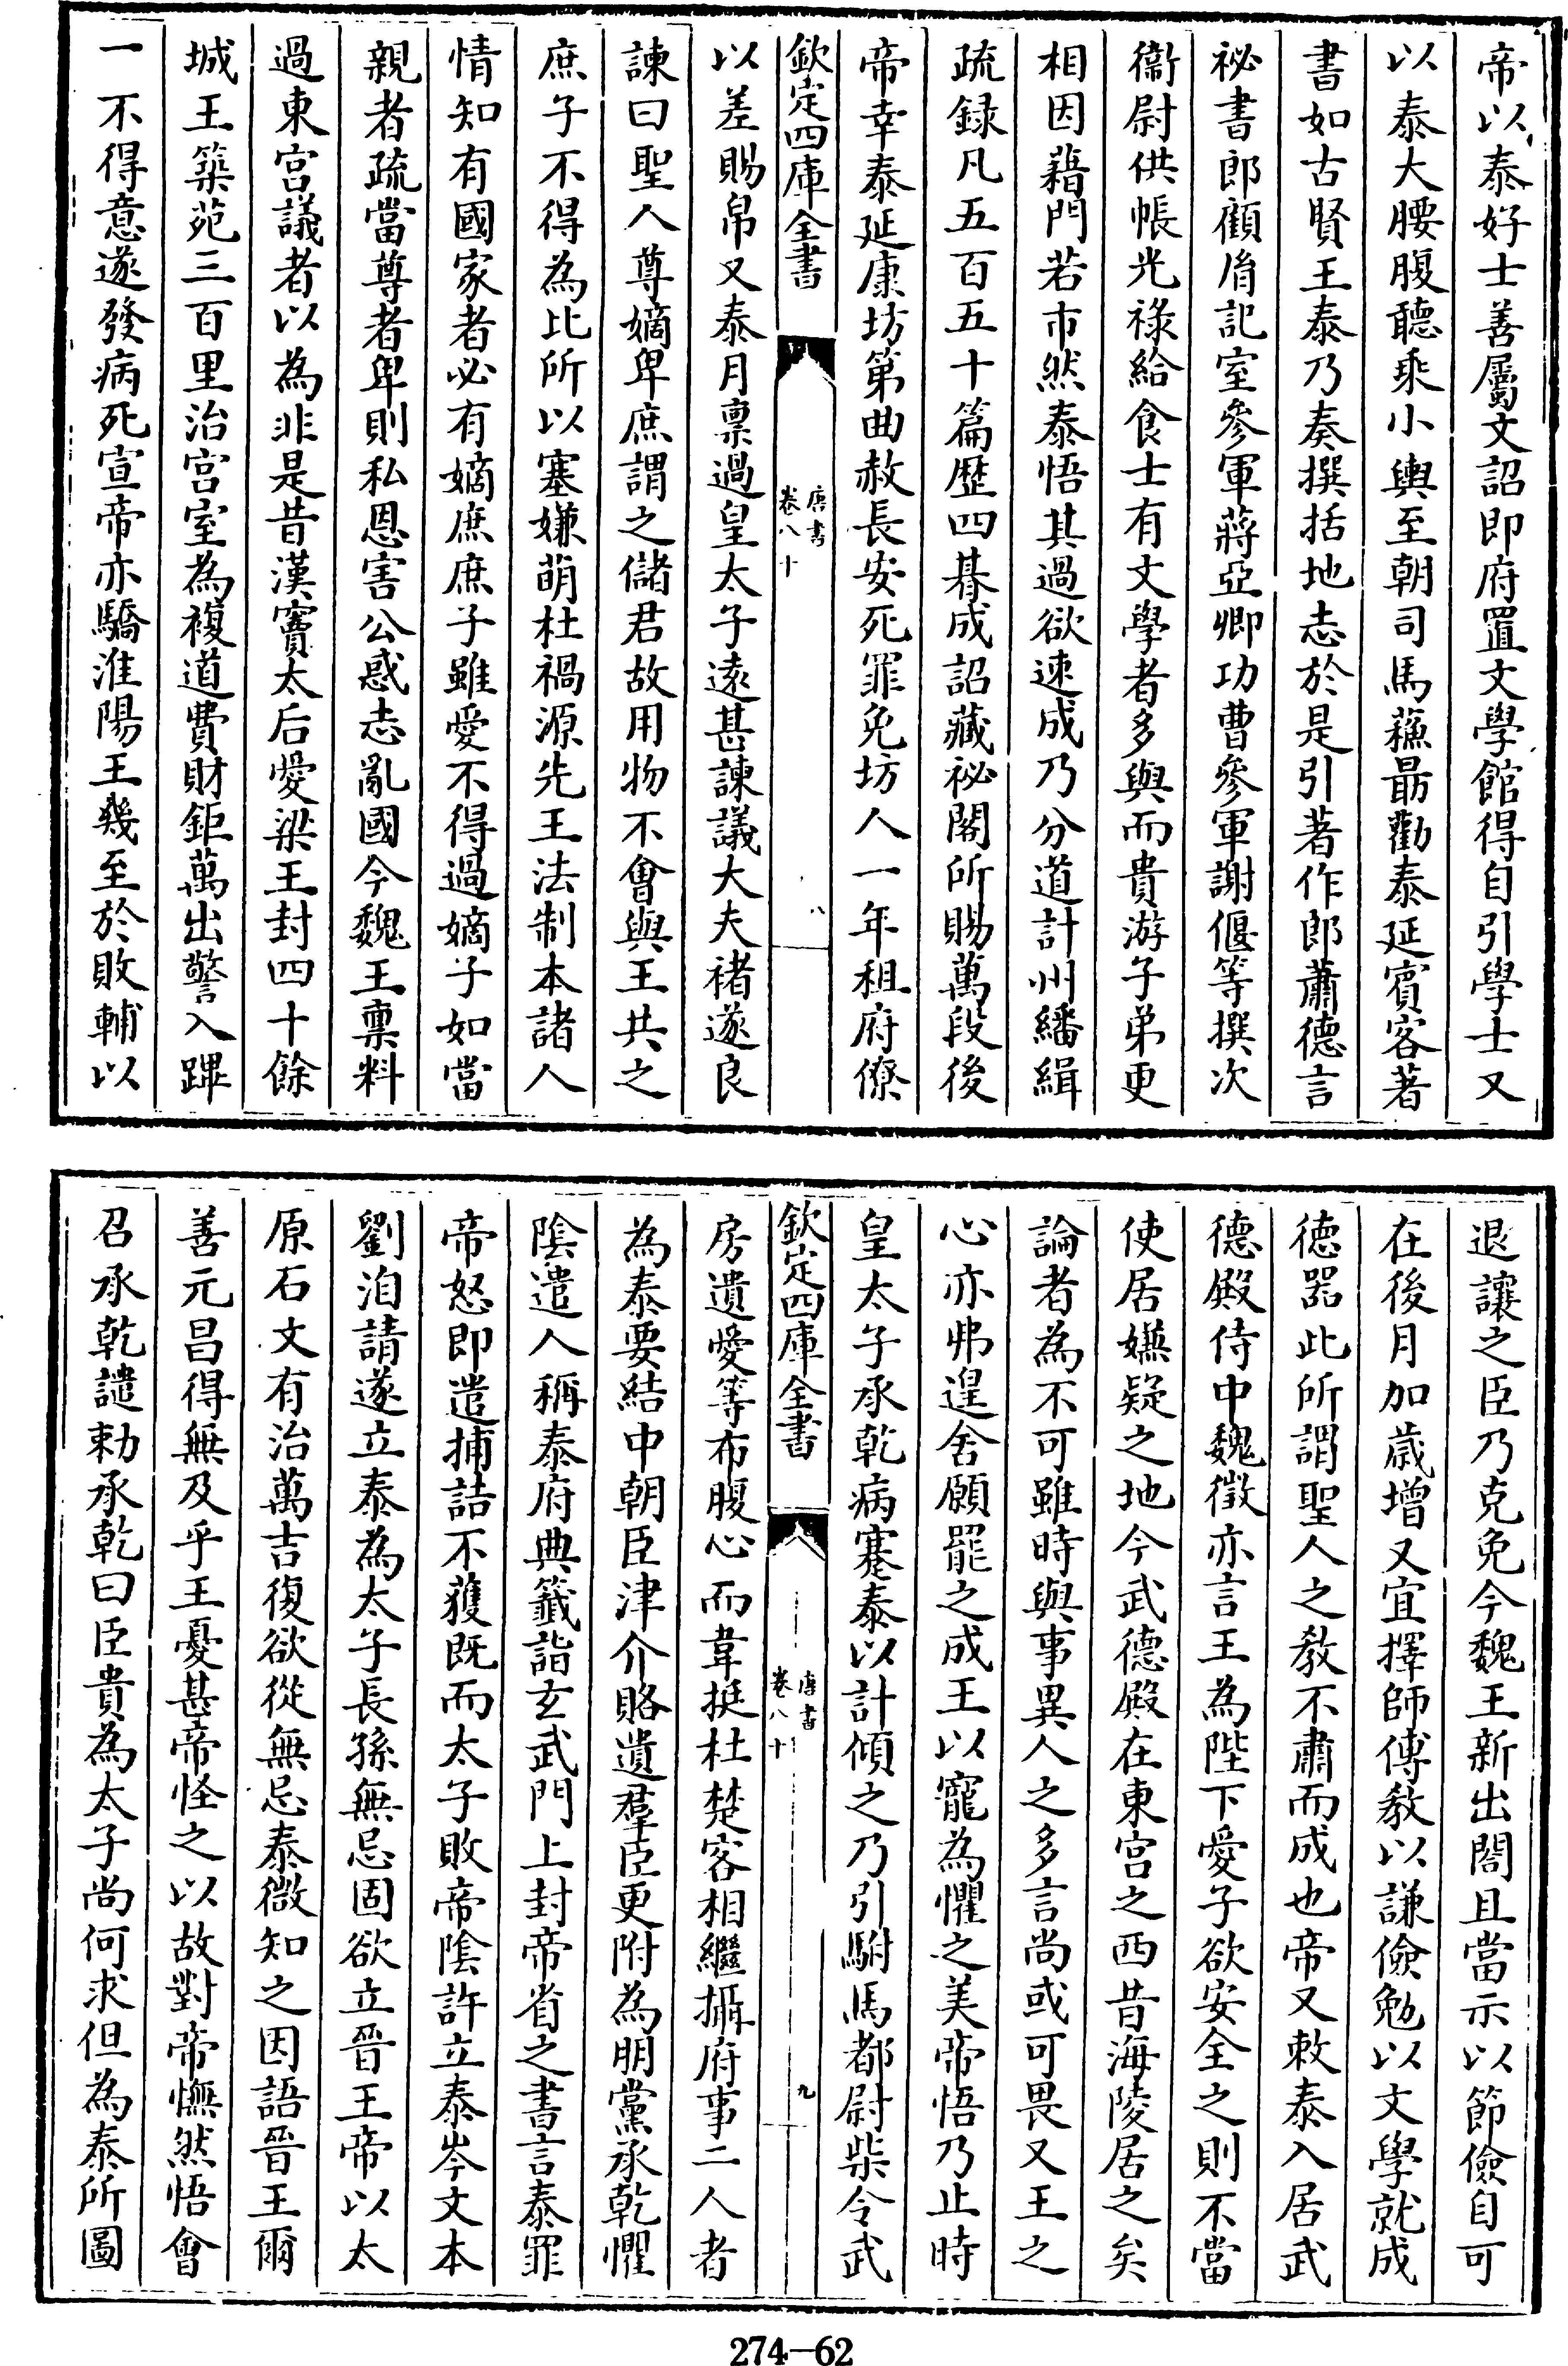 帝以泰好士善屬文詔即府置文學館得自引學士又
以泰大腰腹聽乘小輿至朝司馬蘇勗勸泰延賓客著
書如古賢王泰乃奏撰括地志於是引著作郎蕭德言
祕書郎顧胤記室參軍蔣亞卿功曹參軍謝偃等撰次
衞尉供帳光祿給食士有文學者多與而貴游子弟更
相因藉門若市然泰悟其過欲速成乃分道計州繙緝
疏録凡五百五十篇歷四朞成詔藏祕閣所賜萬段後
帝幸泰延康坊第曲赦長安死罪免坊人一年租府僚
欽定四庫全書
唐書
卷八十
八
以差賜帛又泰月禀過皇太子遠甚諫議大夫褚遂良
諫曰聖人尊嫡卑庶謂之儲君故用物不會與王共之
庶子不得為比所以塞嫌萌杜禍源先王法制本諸人
情知有國家者必有嫡庶庶子雖愛不得過嫡子如當
親者疏當尊者卑則私恩害公惑志亂國今魏王禀料
過東宫議者以為非是昔漢竇太后愛梁王封四十餘
城王築苑三百里治宫室為複道費財鉅萬出警入蹕
一不得意遂發病死宣帝亦驕淮陽王幾至於敗輔以
退讓之臣乃克免今魏王新出閤且當示以節儉自可
在後月加歲增又宜擇師傅敎以謙儉勉以文學就成
德器此所謂聖人之敎不肅而成也帝又敕泰入居武
德殿侍中魏徵亦言王為陛下愛子欲安全之則不當
使居嫌疑之地今武德殿在東宫之西昔海陵居之矣
論者為不可雖時與事異人之多言尚或可畏又王之
心亦弗遑舍願罷之成王以寵為懼之美帝悟乃止時
皇太子承乾病蹇泰以計傾之乃引駙馬都尉柴令武
欽定四庫全書
唐書
卷八十
九
房遺愛等布腹心而韋挺杜楚客相繼攝府事二人者
為泰要結中朝臣津介賂遺羣臣更附為朋黨承乾懼
陰遣人稱泰府典籤詣玄武門上封帝省之書言泰罪
帝怒即遣捕詰不獲既而太子敗帝陰許立泰岑文本
劉洎請遂立泰為太子長孫無忌固欲立晉王帝以太
原石文有治萬吉復欲從無忌泰微知之因語晉王爾
善元昌得無及乎王憂甚帝怪之以故對帝憮然悟會
召承乾譴勅承乾曰臣貴為太子尚何求但為泰所圖
274—62